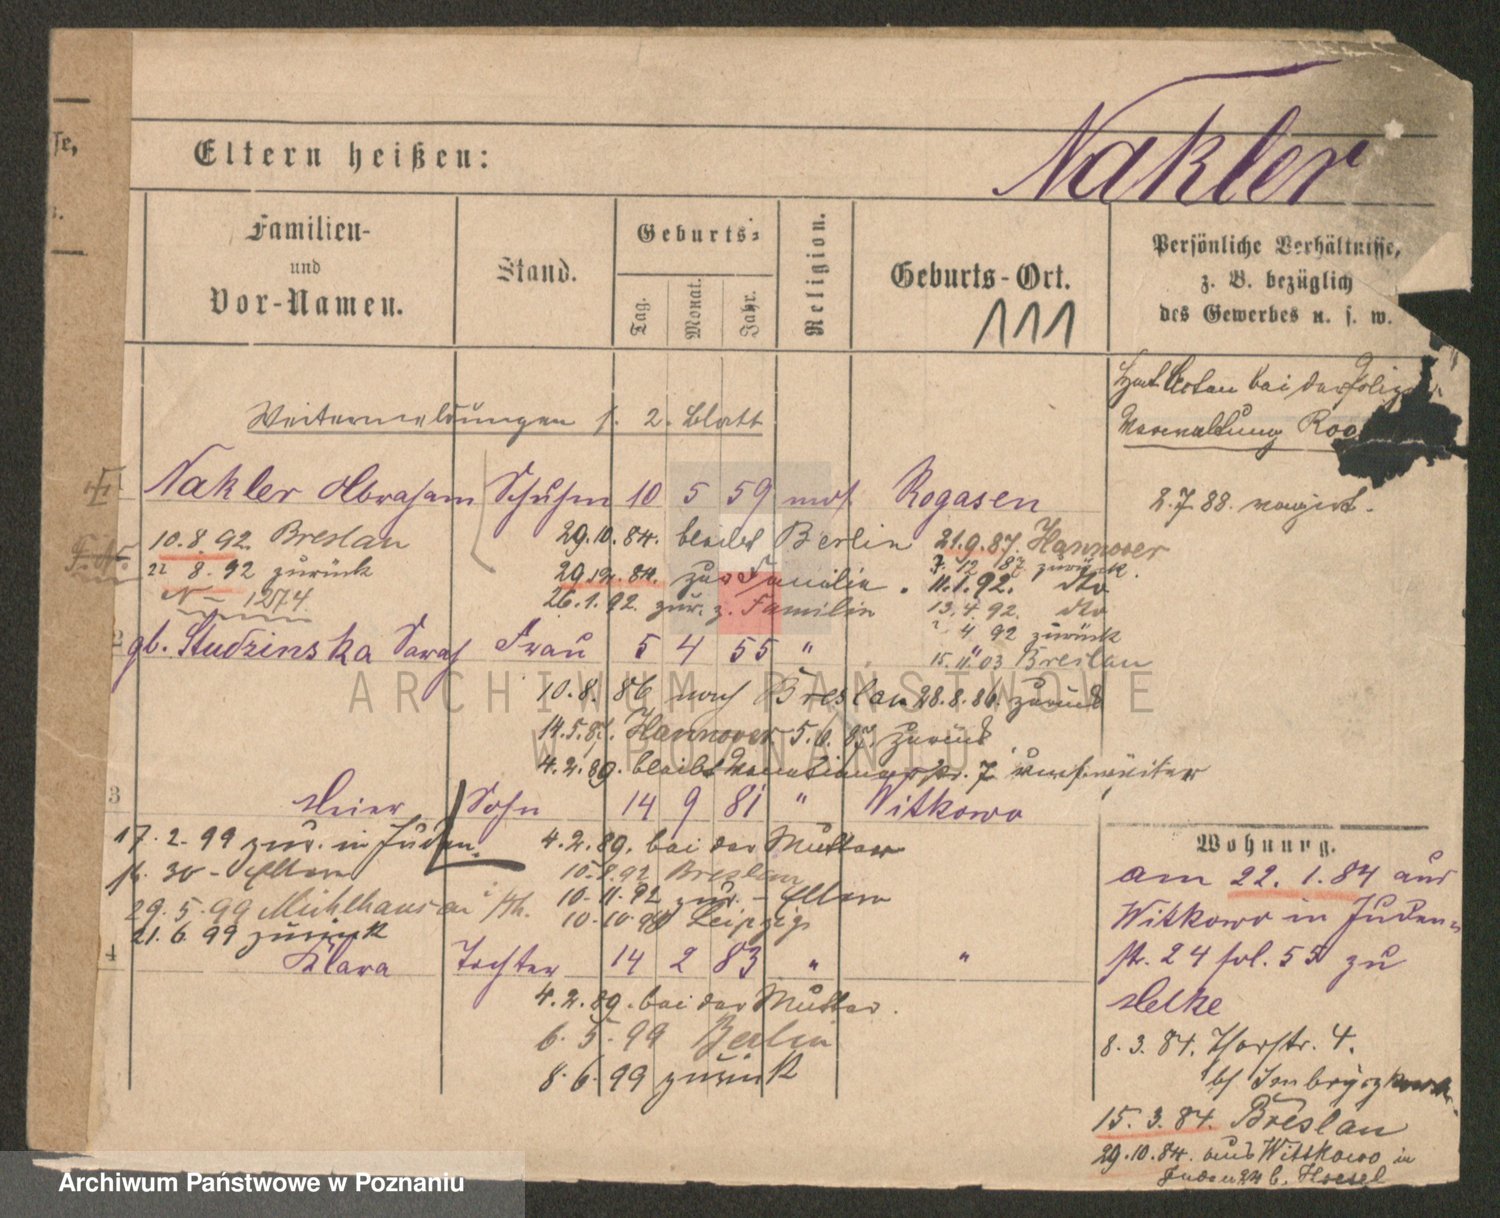 Nakler
Eltern heißen:
Familien-
und
Vor-Namen.
Stand.
Geburts-
Tag.
Monat.
Jahr.
Religion.
Geburts-Ort.
111
Persönliche Verhältnisse,
z. B. bezüglich
des Gewerbes u. s. w.
Hat Acten bei der Polizei
Verwaltung
Weitermeldungen s. 2. Blatt
1 Nakler Abraham Schuhm 10 5 59 mos Rogasen
2.7.88.
10.8.92. Breslau
29.10.84. bleibt Berlin
21.9.87. Hannover
22 8.92 zurück
29.12.84. zur Familie.
7.12 87 zurück.
11.1.92. dto
1274
26.1.92. zur. z. Familie
13.4.92. dto
4 92 zurück
2 gb. Studzinska Sarah Frau 5 4 55 " "
15.11.03 Breslau
10.8.86 nach Breslau 28.8.86. zurück
14.5.87. Hannover 5.6.87 zurück
4.2.89. bleibt
3 Meier Sohn 14 9 81 " Witkowo
17.2.99 zur. in Juden
4.2.89. bei der Mutter
str. 30 - Eltern
10.8.92 Breslau
10.11.92 zur. - Eltern
29.5.99 Mühlhausen i/Th.
10.10.98 Leipzig
21.6.99 zurück
4 Klara Tochter 14 2 83 " "
4.2.89. bei der Mutter.
6.5.99 Berlin
8.6.99 zurück
Wohnung.
am 22.1.84 aus
Witkowo in Juden=
str. 24 fol. 55 zu
Helke
8.3.84. Thorstr. 4.
15.3.84. Breslau
29.10.84. aus Wittkowo in
Juden 24 b.
ARCHIWUM PAŃSTWOWE
W POZNANIU
Archiwum Państwowe w Poznaniu